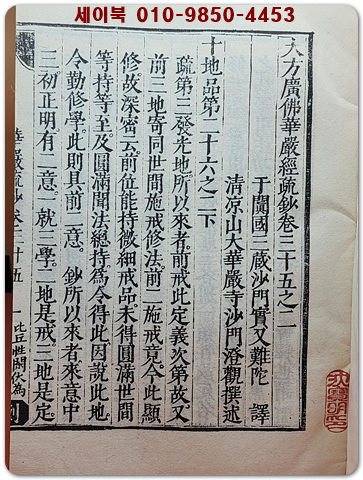 세이북 010-9850-4453
大方廣佛華嚴經疏鈔卷三十五之二
于闐國三藏沙門實叉難陀 譯
清凉山大華嚴寺沙門澄觀撰述
十地品第二十六之二下
疏第三發光地所以來者前戒此定義次第故又
前三地寄同世間施戒修法前二施戒竟今此顯
修故深密云前位能持微細戒品未得圓滿世間
等持等至及圓滿聞法總持爲令得此因說此地
令勤修學此則具前二意 鈔所以來者來意中
三初正明有二意一就三學二地是戒三地是定
華嚴疏鈔卷三十五 一